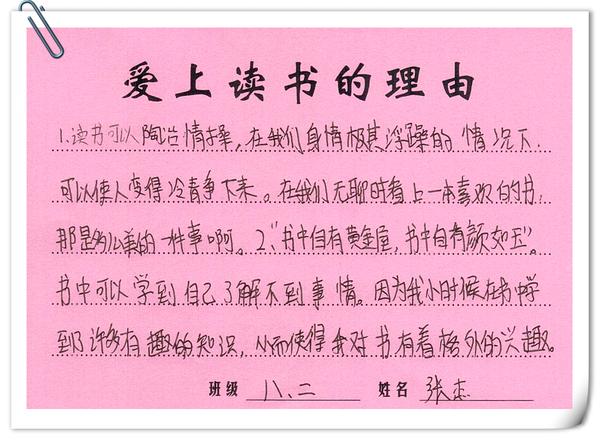 爱上读书的理由
1.读书可以陶冶情操，在我们身情极其浮躁的情况下，
可以使人变得冷青争下来。在我们无聊时看上一本喜欢的书，
那是多么美的一件事啊。2、“书中自有黄金屋，书中自有颜如玉”。
书中可以学到自己了解不到事情。因为我小时候在书中学
到了许多有趣的知识，从而使得我对书有着格外的兴趣。
班级 八、二 姓名 张杰